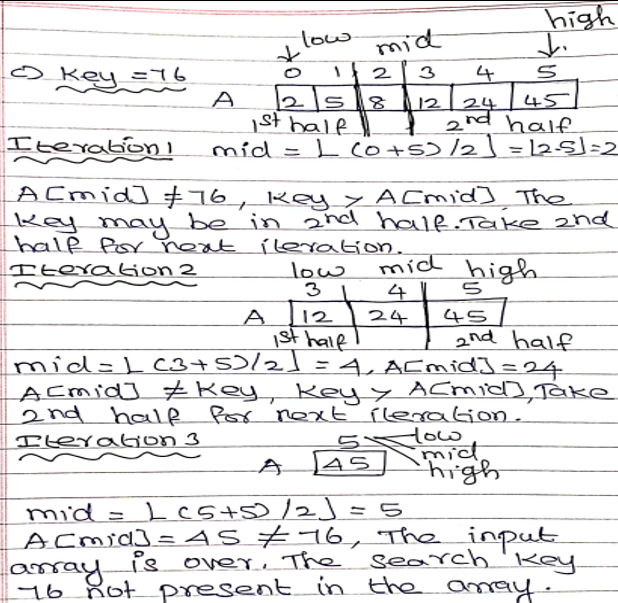 high
low mid
c) Key = 76 0 1 2 3 4 5
A 2 5 8 12 24 45
1st half 2nd half
Iteration 1 mid = ⌊(0+5)/2⌋ = ⌊2.5⌋ = 2
A[mid] ≠ 76, Key > A[mid] The
Key may be in 2nd half. Take 2nd
half for next iteration.
Iteration 2 low mid high
3 4 5
A 12 24 45
1st half 2nd half
mid = ⌊(3+5)/2⌋ = 4, A[mid] = 24
A[mid] ≠ Key, Key > A[mid], Take
2nd half for next iteration.
Iteration 3 5 low
mid
A 45 high
mid = ⌊(5+5)/2⌋ = 5
A[mid] = 45 ≠ 76, The input
array is over. The search key
76 not present in the array.